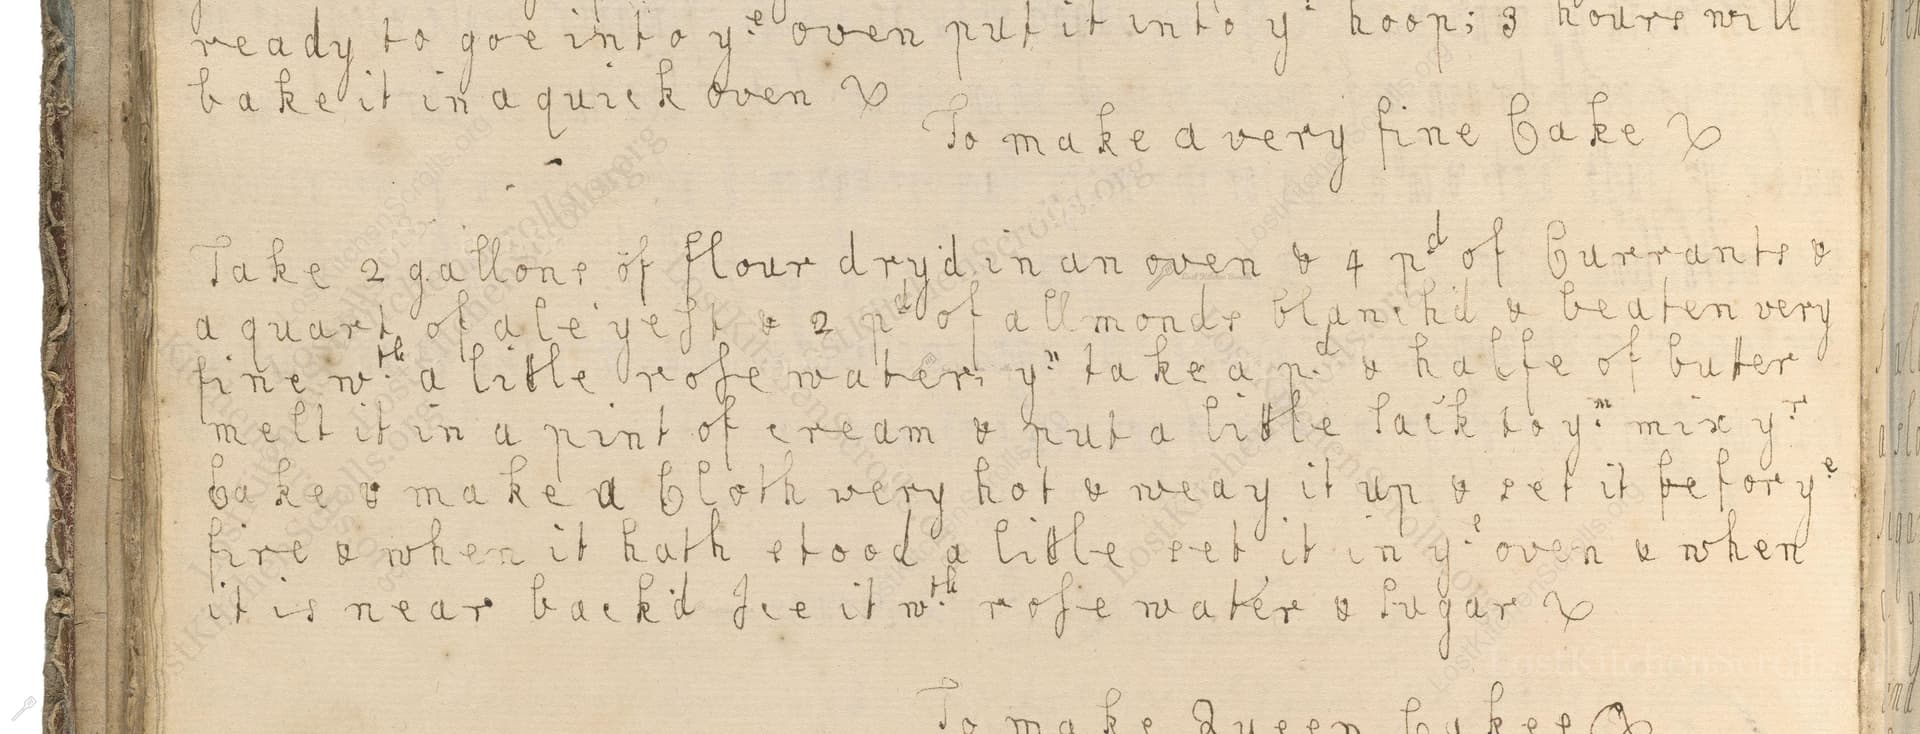 ready to goe into yᵉ oven put it into yʳ hoop; 3 hours will
bake it in a quick oven
To make a very fine Cake
Take 2 gallons of flour dryd in an oven & 4 pᵈ of Currants &
a quart of ale yest & 2 pᵈ of allmonds blanchd & beaten very
fine wᵗʰ a little rose water, yⁿ take a pᵈ & halfe of butter
melt it in a pint of cream & put a little sack to yᵐ mix yʳ
Cake & make a Cloth very hot & it up & set it befor yᵉ
fire & when it hath stood a little set it in yᵉ oven & when
it is near back'd Ice it wᵗʰ rose water & sugar
To make Queen Cakes
LostKitchenScrolls.org